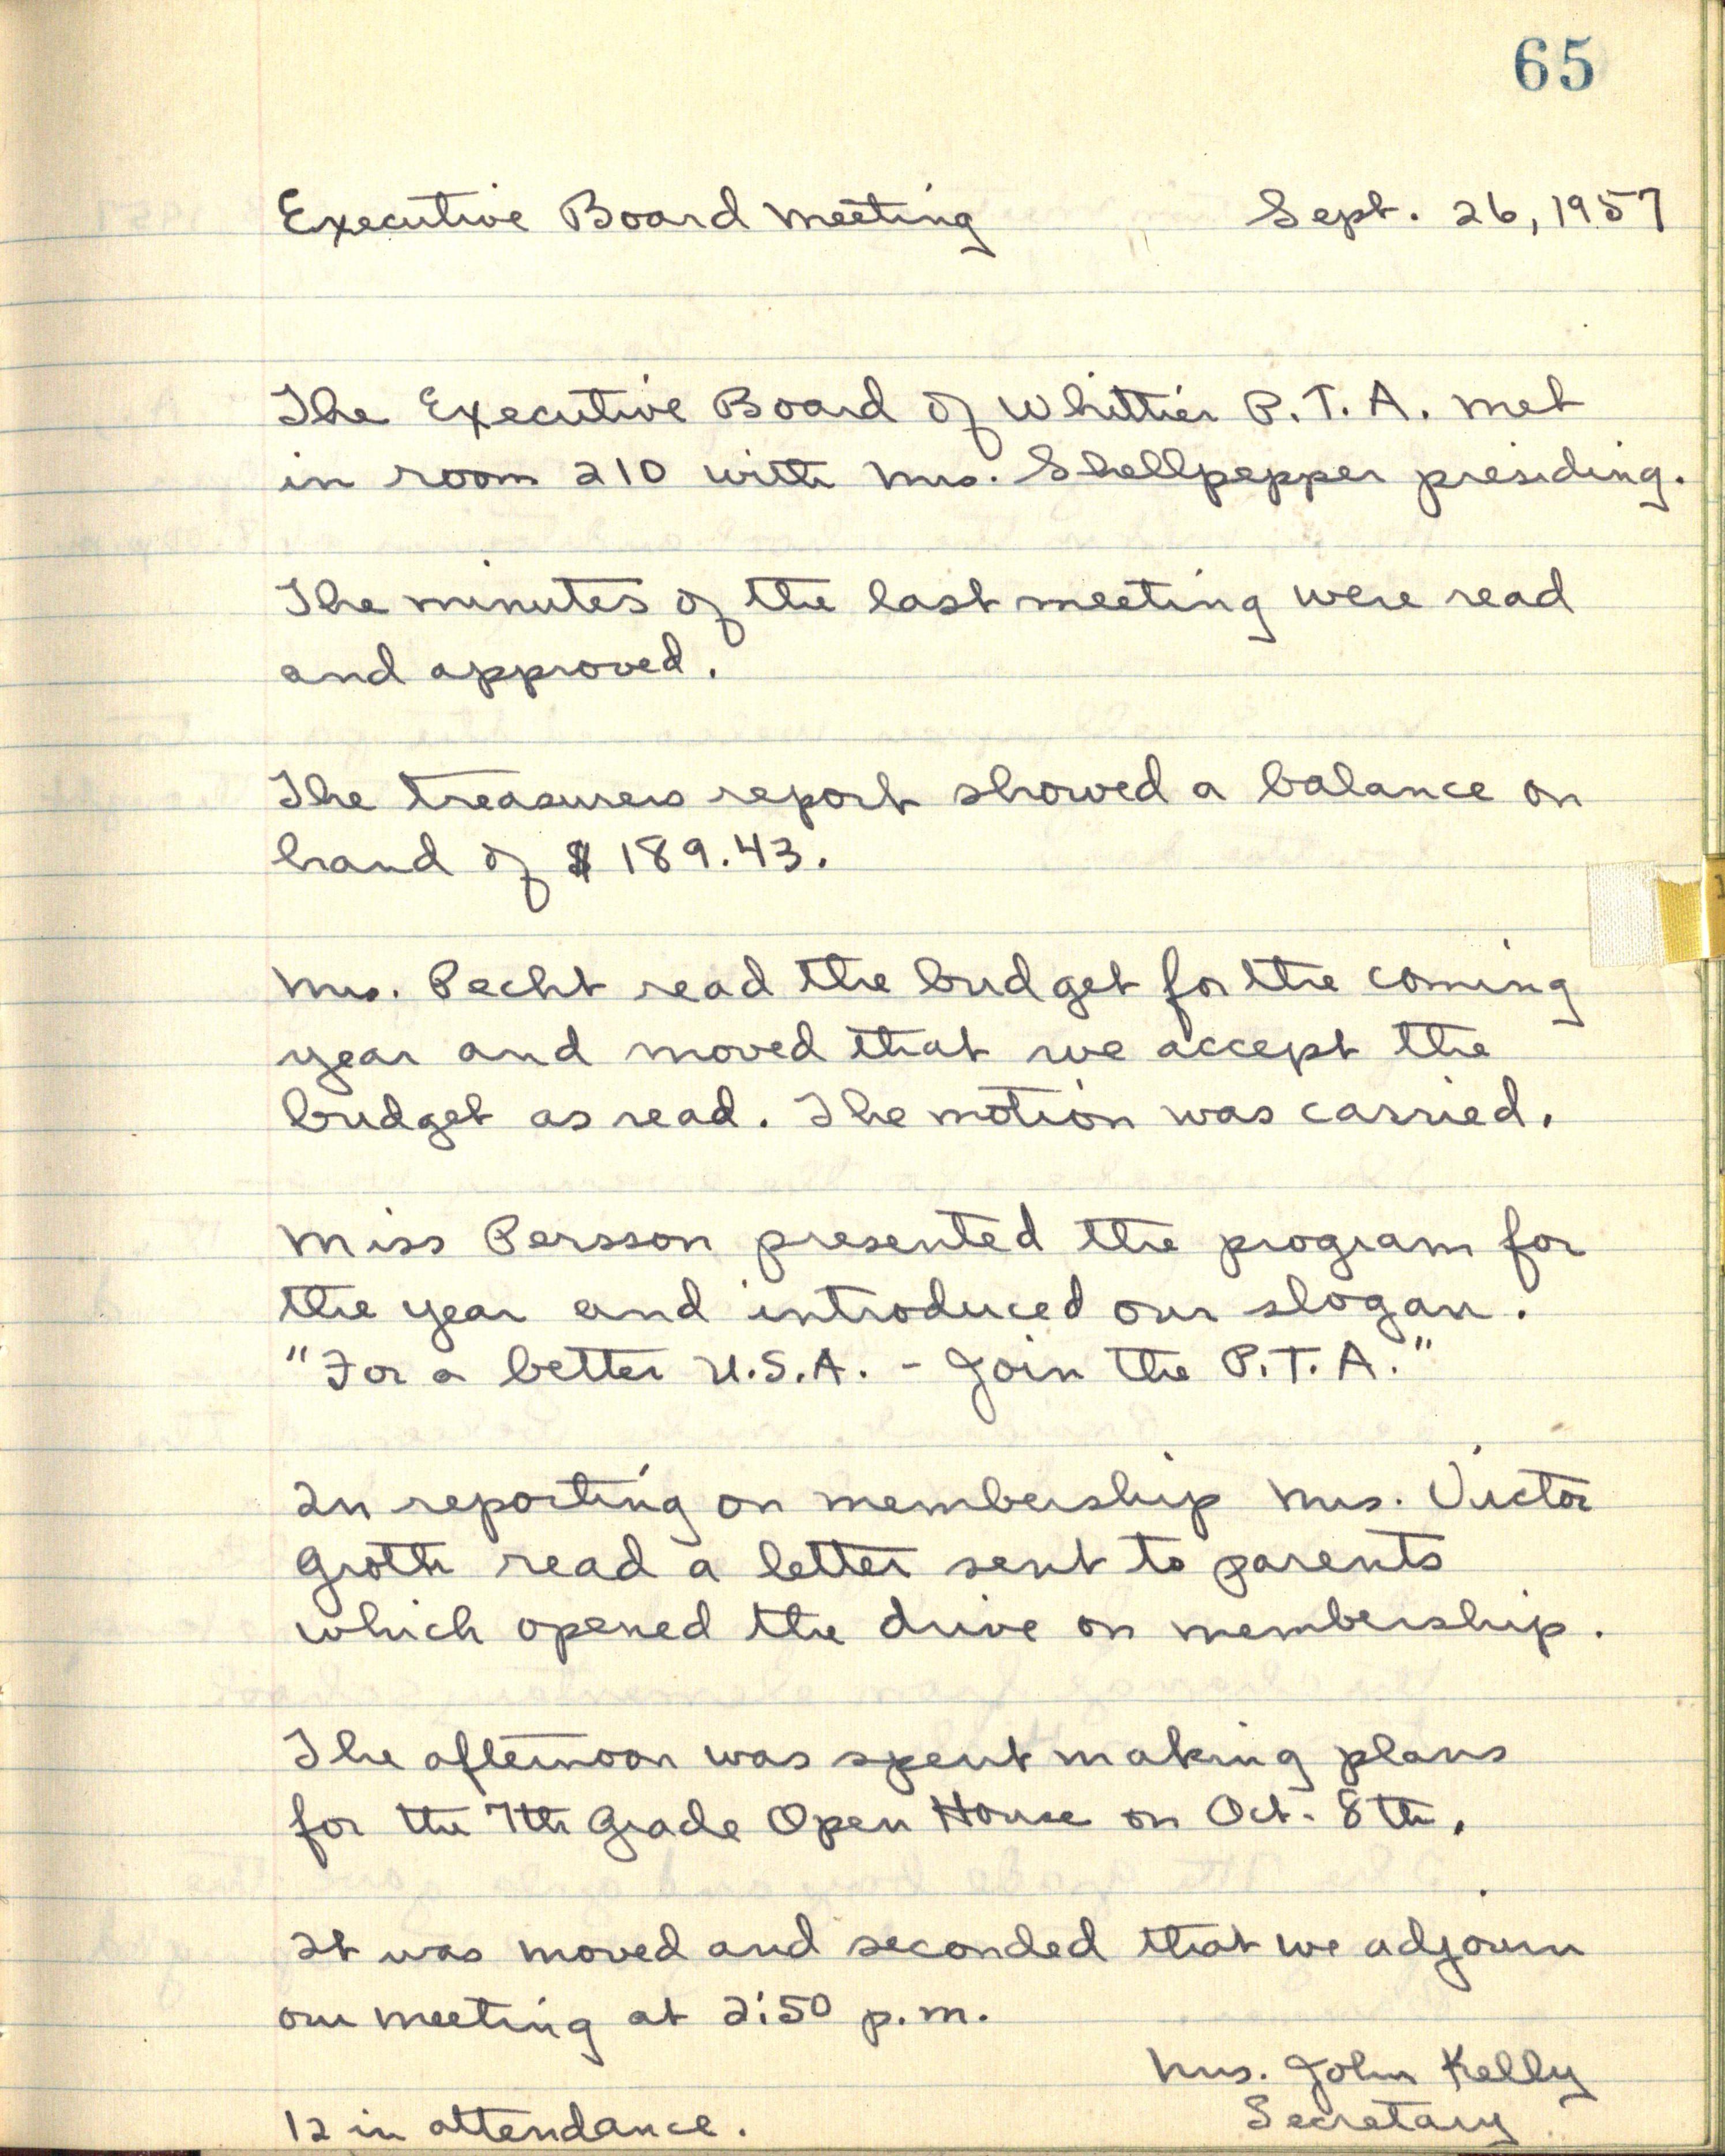 65
Executive Board Meeting Sept. 26, 1957
The Executive Board of Whittier P.T.A. met
in room 210 with Mrs. Shellpepper presiding.
The minutes of the last meeting were read
and approved.
The treasurers report showed a balance on
hand of $189.43.
Mrs. Pecht read the budget for the coming
year and moved that we accept the
budget as read. The motion was carried.
Miss Persson presented the program for
the year and introduced our slogan.
"For a better U.S.A. - Join the P.T.A."
In reporting on membership Mrs. Victor
Groth read a letter sent to parents
which opened the drive on membership.
The afternoon was spent making plans
for the 7th Grade Open House on Oct. 8th.
It was moved and seconded that we adjourn
our meeting at 2:50 p.m.
Mrs. John Kelly
Secretary
12 in attendance.